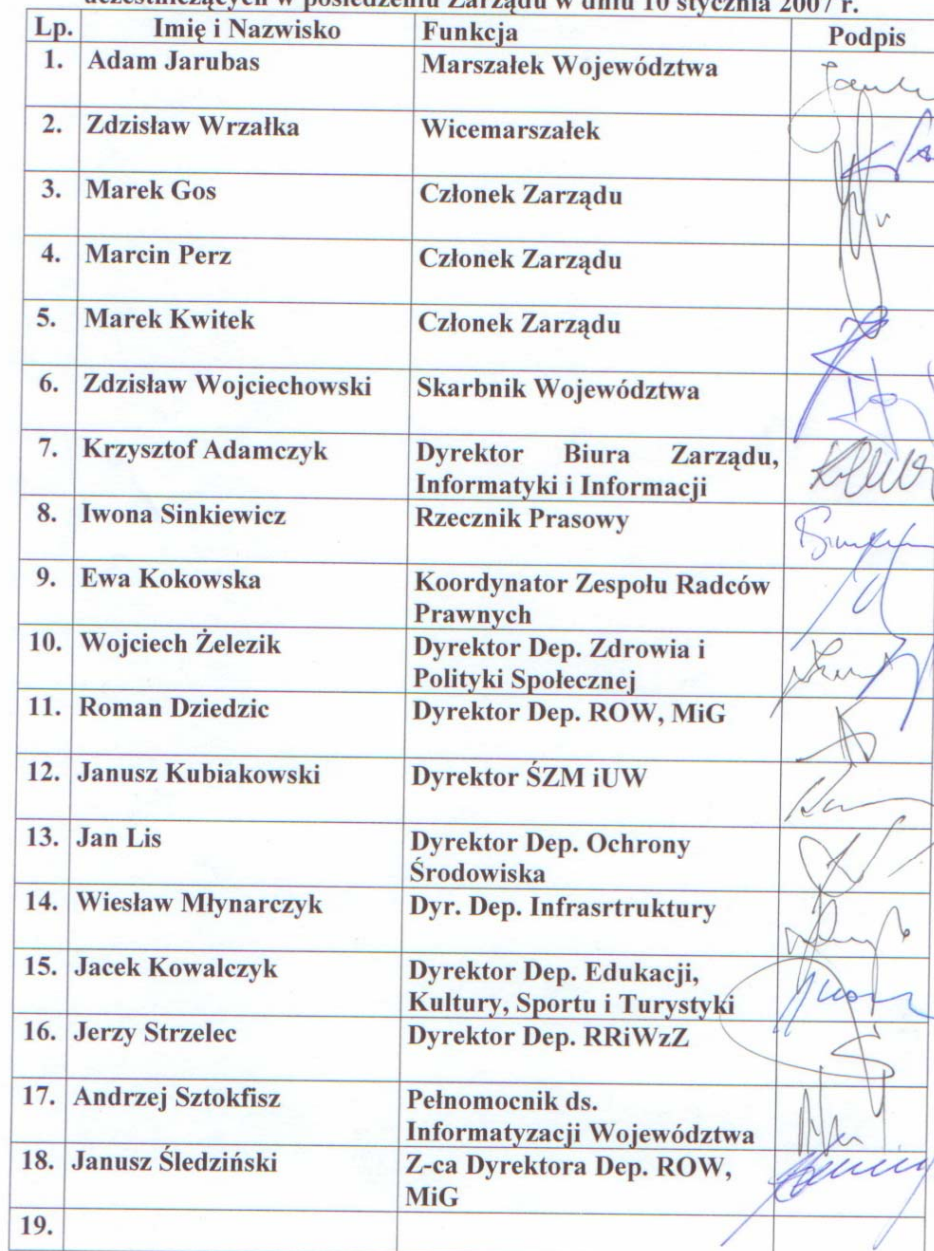 uczestniczących w posiedzeniu Zarządu w dniu 10 stycznia 2007 r.
Lp. Imię i Nazwisko Funkcja Podpis
1. Adam Jarubas Marszałek Województwa
2. Zdzisław Wrzałka Wicemarszałek
3. Marek Gos Członek Zarządu
4. Marcin Perz Członek Zarządu
5. Marek Kwitek Członek Zarządu
6. Zdzisław Wojciechowski Skarbnik Województwa
7. Krzysztof Adamczyk Dyrektor Biura Zarządu,
Informatyki i Informacji
8. Iwona Sinkiewicz Rzecznik Prasowy
9. Ewa Kokowska Koordynator Zespołu Radców
Prawnych
10. Wojciech Żelezik Dyrektor Dep. Zdrowia i
Polityki Społecznej
11. Roman Dziedzic Dyrektor Dep. ROW, MiG
12. Janusz Kubiakowski Dyrektor ŚZM iUW
13. Jan Lis Dyrektor Dep. Ochrony
Środowiska
14. Wiesław Młynarczyk Dyr. Dep. Infrasrtruktury
15. Jacek Kowalczyk Dyrektor Dep. Edukacji,
Kultury, Sportu i Turystyki
16. Jerzy Strzelec Dyrektor Dep. RRiWzZ
17. Andrzej Sztokfisz Pełnomocnik ds.
Informatyzacji Województwa
18. Janusz Śledziński Z-ca Dyrektora Dep. ROW,
MiG
19.